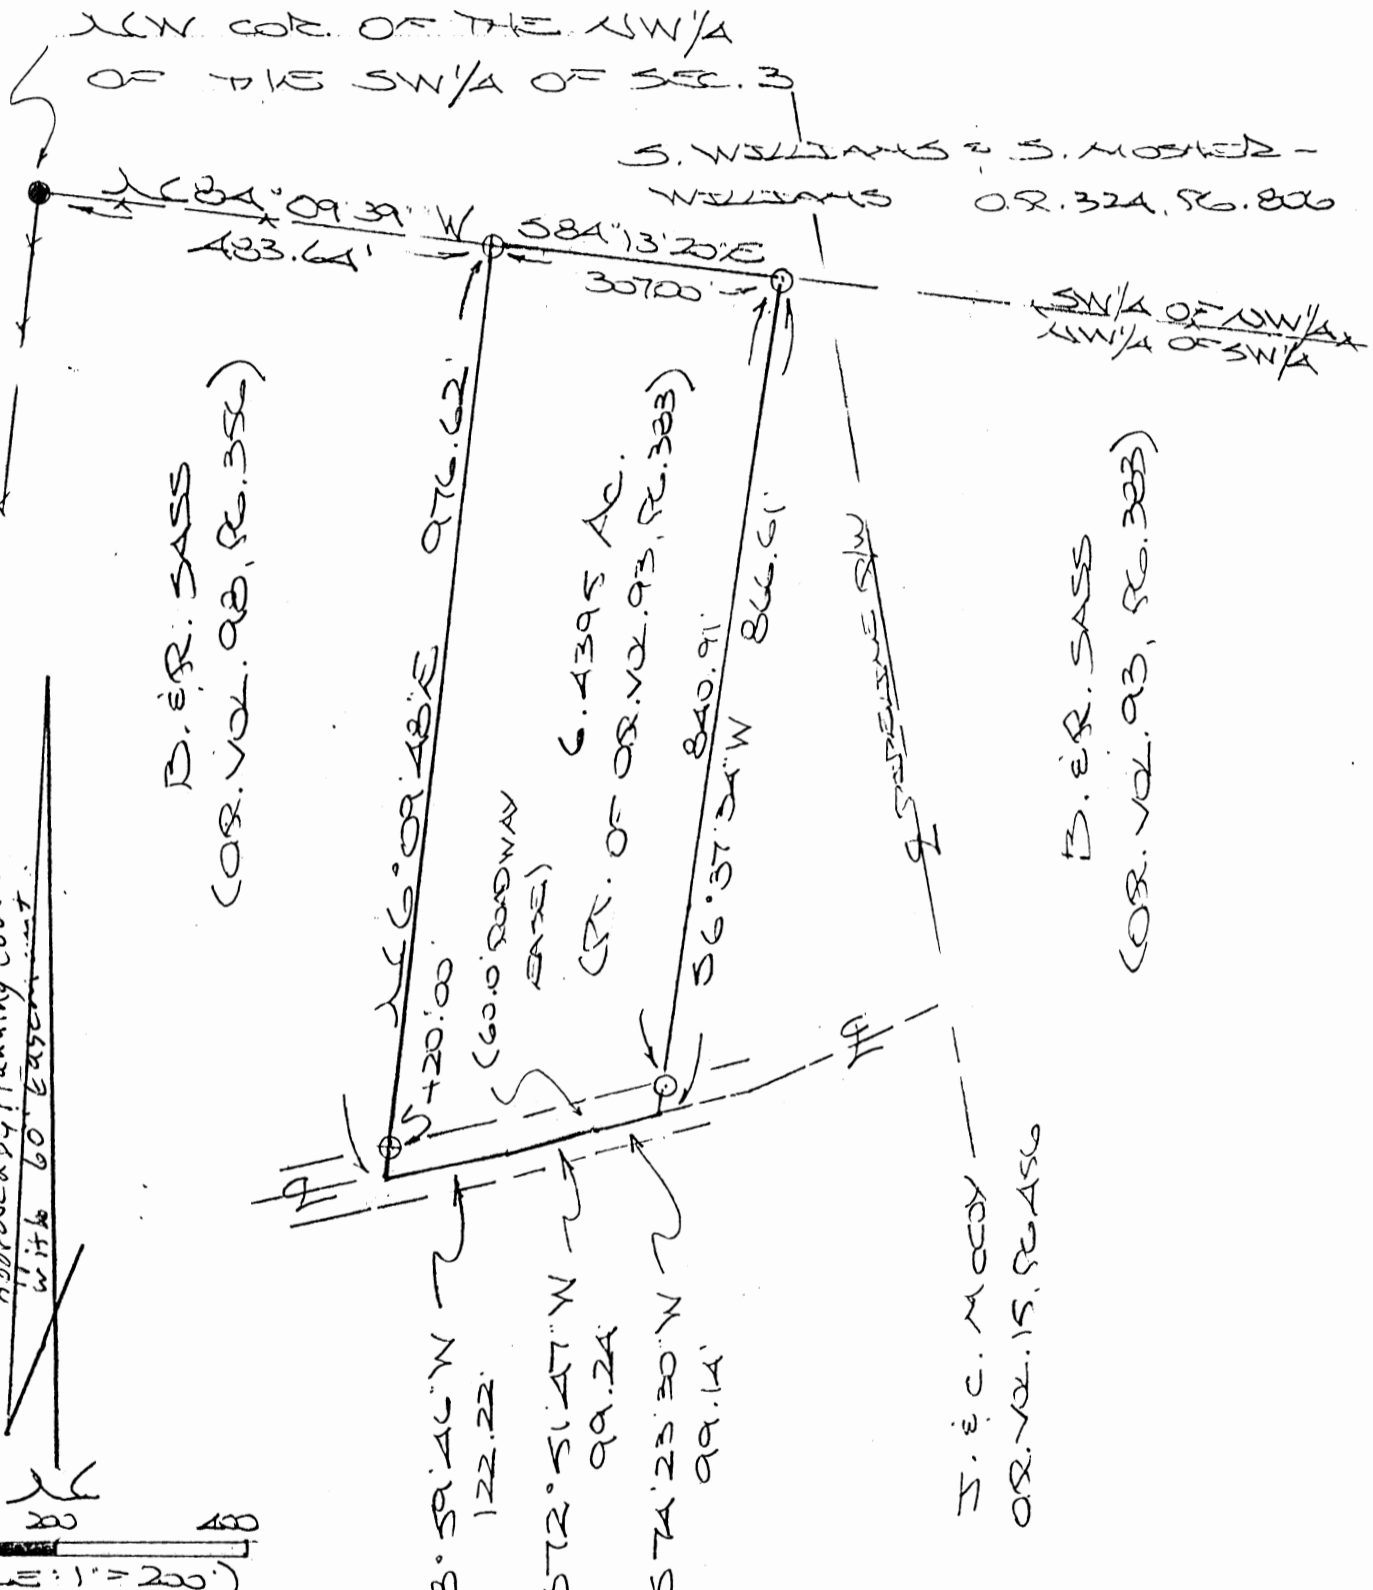 NW COR. OF THE NW1/4
OF THE SW1/4 OF SEC. 3
S. WILLIAMS & S. MOSHER-
WILLIAMS O.R. 324, PG. 806
N 84° 09' 39" W
483.64'
S 84° 13' 20" E
307.00'
SW1/4 OF NW1/4
NW1/4 OF SW1/4
B. & R. SASS
(O.R. VOL. 93, PG. 356)
N 6° 09' 48" E 976.62'
6.4395 AC.
(PT. OF O.R. VOL. 93, PG. 383)
840.91'
866.61'
S 6° 37' 34" W
PIPELINE R/W
B. & R. SASS
(O.R. VOL. 93, PG. 383)
5+20.00'
(60.0' ROADWAY
EASE.)
with 60' Easement.
59' 46" W
122.22'
S 72° 51' 47" W
99.24'
S 74° 23' 30" W
99.14'
J. & C. MCCOY
O.R. VOL. 15, PG. 456
N
200 400
1" = 200')